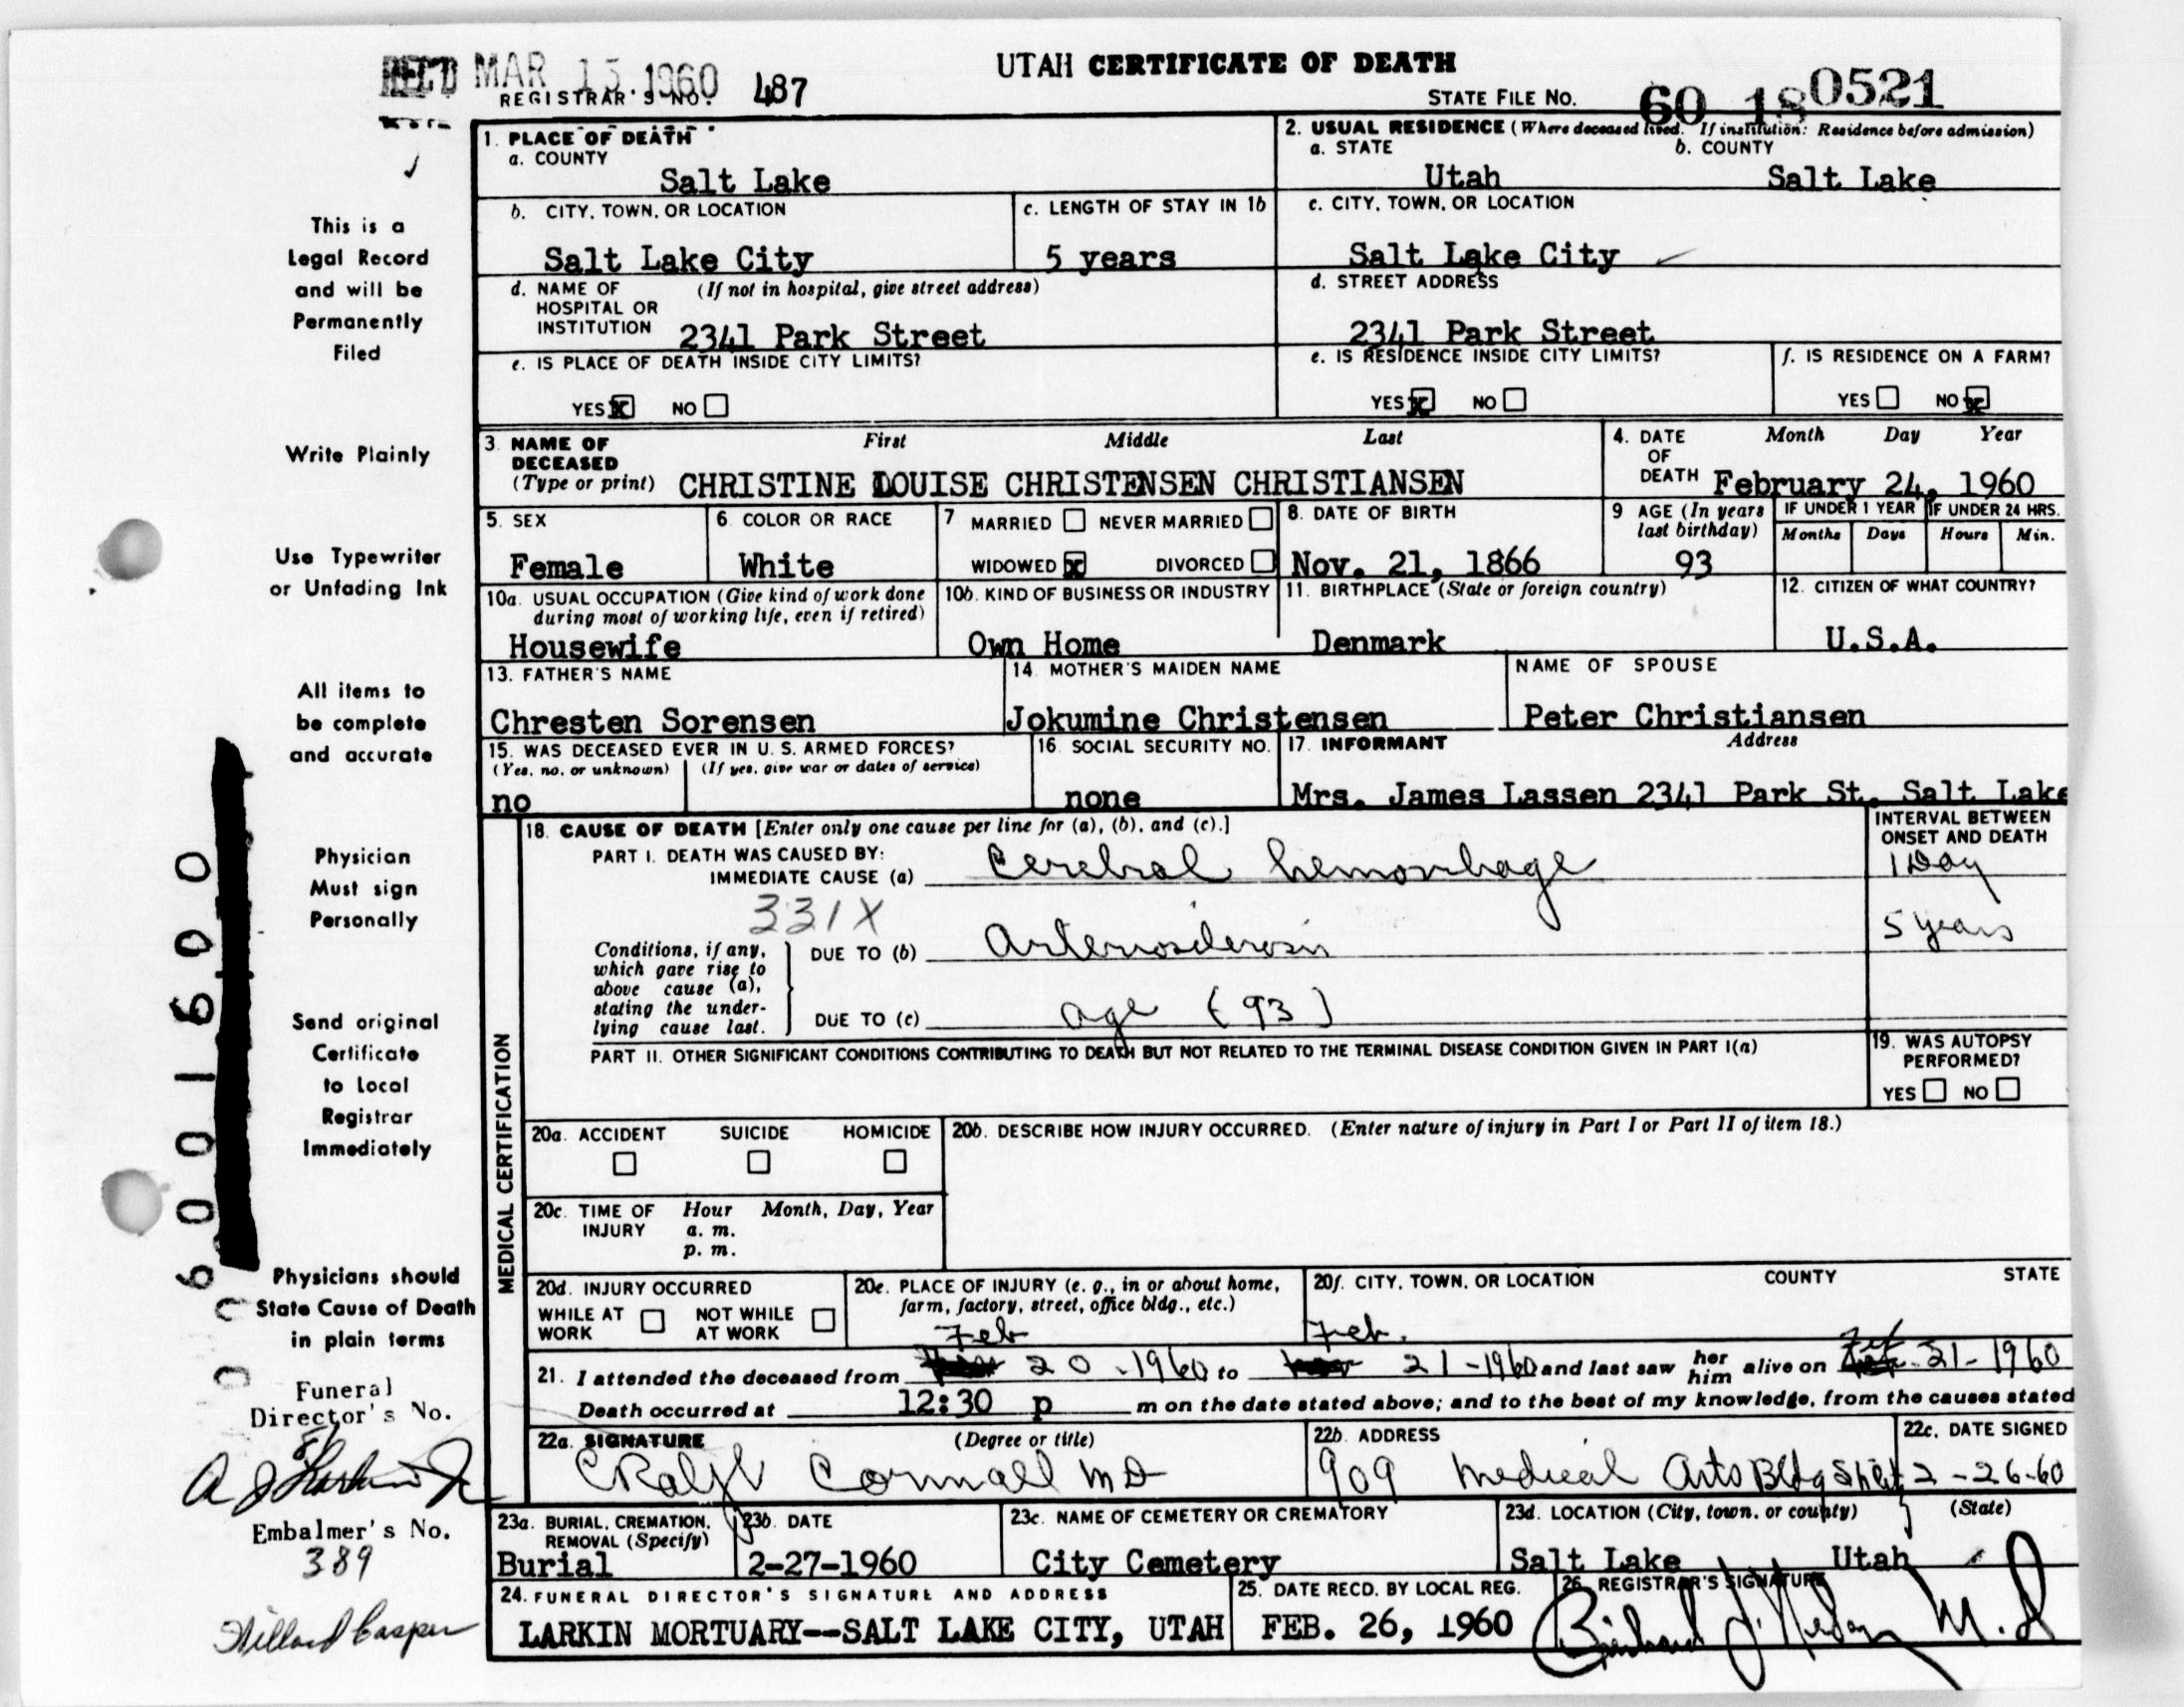 REC'D MAR 15 1960
UTAH CERTIFICATE OF DEATH
REGISTRAR'S NO. 487
STATE FILE No. 60 18 0521
This is a
Legal Record
and will be
Permanently
Filed
Write Plainly
Use Typewriter
or Unfading Ink
All items to
be complete
and accurate
Physician
Must sign
Personally
Send original
Certificate
to Local
Registrar
Immediately
Physicians should
State Cause of Death
in plain terms
Funeral
Director's No.
Embalmer's No.
389
Willard Casper
1. PLACE OF DEATH
a. COUNTY
Salt Lake
2. USUAL RESIDENCE (Where deceased lived. If institution: Residence before admission)
a. STATE b. COUNTY
Utah Salt Lake
b. CITY, TOWN, OR LOCATION
Salt Lake City
c. LENGTH OF STAY IN 1b
5 years
c. CITY, TOWN, OR LOCATION
Salt Lake City
d. NAME OF (If not in hospital, give street address)
HOSPITAL OR
INSTITUTION 2341 Park Street
d. STREET ADDRESS
2341 Park Street
e. IS PLACE OF DEATH INSIDE CITY LIMITS?
YES X NO
e. IS RESIDENCE INSIDE CITY LIMITS?
YES X NO
f. IS RESIDENCE ON A FARM?
YES NO X
3. NAME OF First Middle Last
DECEASED
(Type or print) CHRISTINE LOUISE CHRISTENSEN CHRISTIANSEN
4. DATE Month Day Year
OF
DEATH February 24, 1960
5. SEX
Female
6. COLOR OR RACE
White
7 MARRIED NEVER MARRIED
WIDOWED X DIVORCED
8. DATE OF BIRTH
Nov. 21, 1866
9 AGE (In years
last birthday)
93
IF UNDER 1 YEAR IF UNDER 24 HRS.
Months Days Hours Min.
10a. USUAL OCCUPATION (Give kind of work done
during most of working life, even if retired)
Housewife
10b. KIND OF BUSINESS OR INDUSTRY
Own Home
11. BIRTHPLACE (State or foreign country)
Denmark
12. CITIZEN OF WHAT COUNTRY?
U.S.A.
13. FATHER'S NAME
Chresten Sorensen
14. MOTHER'S MAIDEN NAME
Jokumine Christensen
NAME OF SPOUSE
Peter Christiansen
15. WAS DECEASED EVER IN U. S. ARMED FORCES?
(Yes, no, or unknown) (If yes, give war or dates of service)
no
16. SOCIAL SECURITY NO.
none
17. INFORMANT Address
Mrs. James Lassen 2341 Park St. Salt Lake
MEDICAL CERTIFICATION
18. CAUSE OF DEATH [Enter only one cause per line for (a), (b), and (c).]
INTERVAL BETWEEN
ONSET AND DEATH
PART I. DEATH WAS CAUSED BY:
IMMEDIATE CAUSE (a) Cerebral hemorrhage 1 Day
331X
Conditions, if any,
which gave rise to
above cause (a),
stating the under-
lying cause last.
DUE TO (b) Arteriosclerosis 5 years
DUE TO (c) age (93)
PART II. OTHER SIGNIFICANT CONDITIONS CONTRIBUTING TO DEATH BUT NOT RELATED TO THE TERMINAL DISEASE CONDITION GIVEN IN PART I(a)
19. WAS AUTOPSY
PERFORMED?
YES NO
20a. ACCIDENT SUICIDE HOMICIDE
20b. DESCRIBE HOW INJURY OCCURRED. (Enter nature of injury in Part I or Part II of item 18.)
20c. TIME OF Hour Month, Day, Year
INJURY a. m.
p. m.
20d. INJURY OCCURRED
WHILE AT NOT WHILE
WORK AT WORK
20e. PLACE OF INJURY (e. g., in or about home,
farm, factory, street, office bldg., etc.)
20f. CITY, TOWN, OR LOCATION COUNTY STATE
21. I attended the deceased from Feb 20 -1960 to Feb. 21-1960 and last saw her him alive on Feb 21-1960
Death occurred at 12:30 p m on the date stated above; and to the best of my knowledge, from the causes stated
22a. SIGNATURE (Degree or title)
C Ralph Cornwall MD
22b. ADDRESS
909 Medical Arts Bldg
22c. DATE SIGNED
2-26-60
23a. BURIAL, CREMATION,
REMOVAL (Specify)
Burial
23b. DATE
2-27-1960
23c. NAME OF CEMETERY OR CREMATORY
City Cemetery
23d. LOCATION (City, town, or county) (State)
Salt Lake Utah
24. FUNERAL DIRECTOR'S SIGNATURE AND ADDRESS
LARKIN MORTUARY--SALT LAKE CITY, UTAH
25. DATE RECD. BY LOCAL REG.
FEB. 26, 1960
26. REGISTRAR'S SIGNATURE
M.D